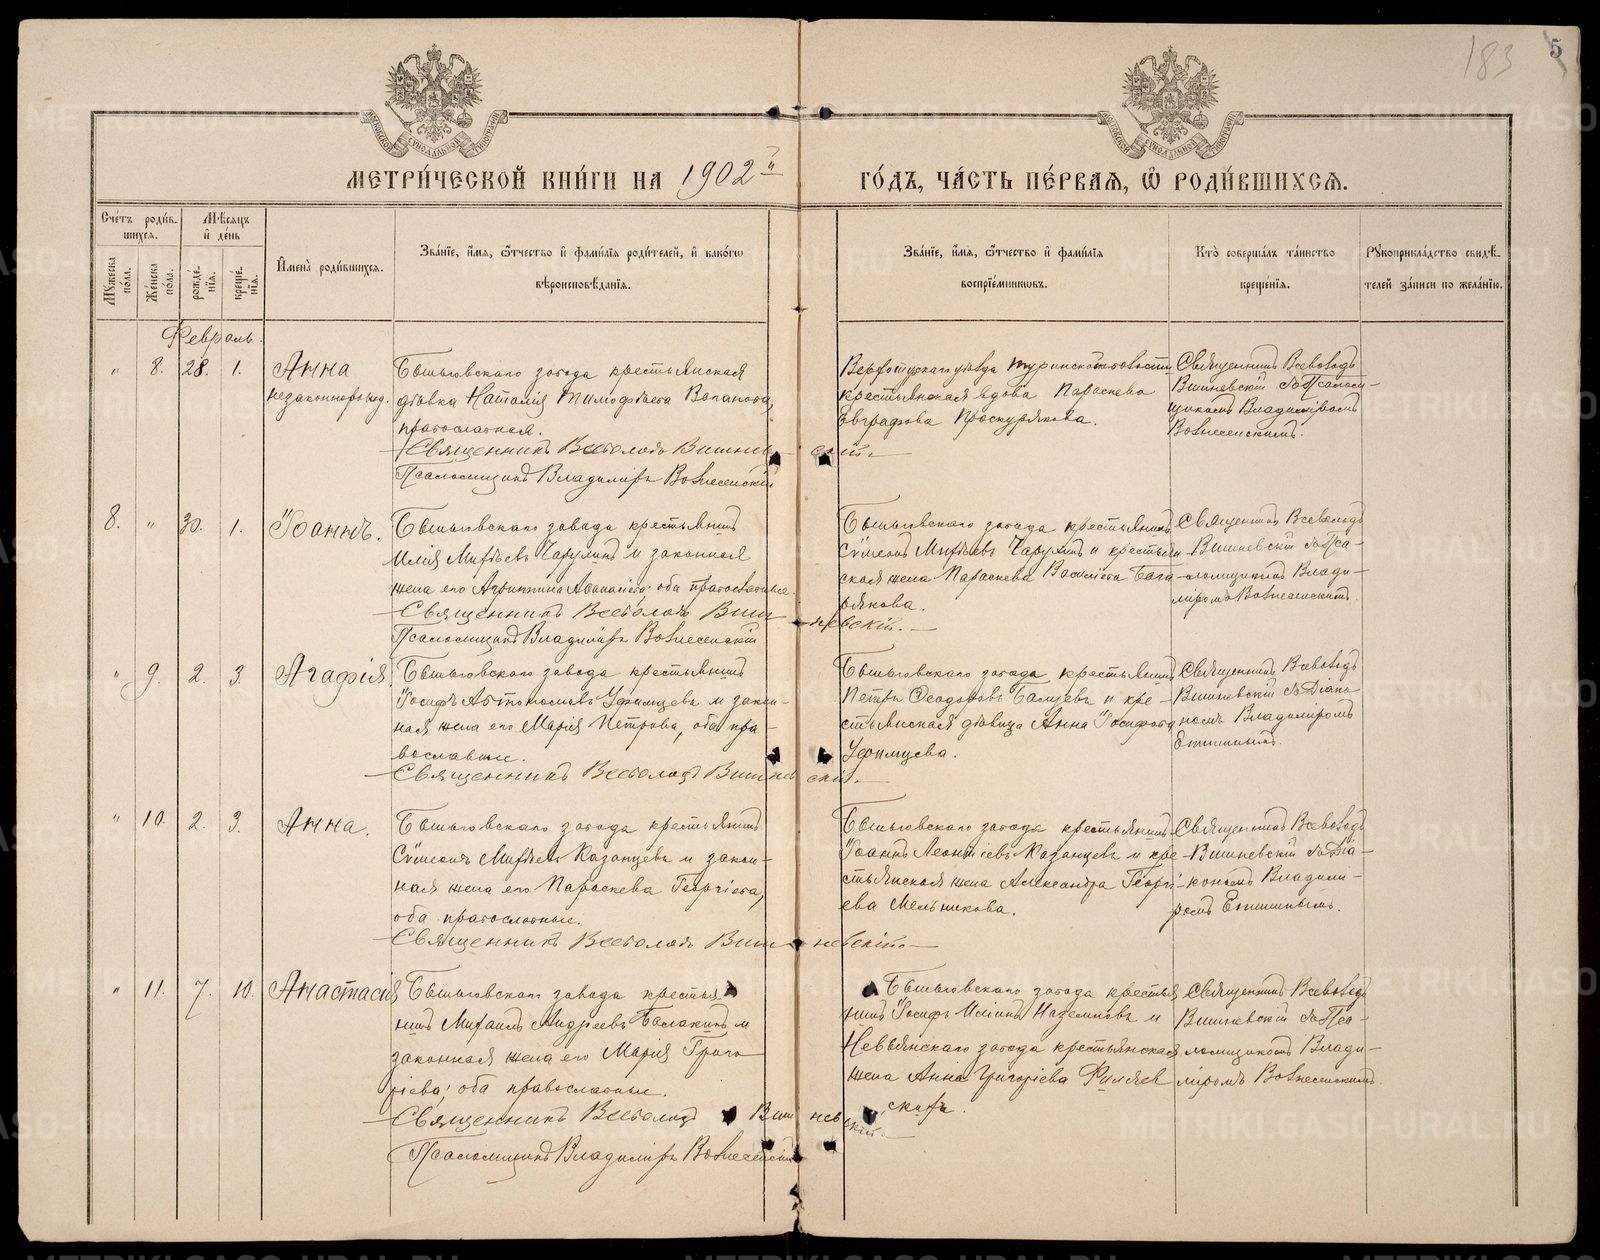 183 5
МЕТРИ́ЧЕСКОЙ КНИ́ГИ НА 1902й ГО́ДЪ, ЧА́СТЬ ПЕ́РВАЯ, Ѡ РОДИ́ВШИХСЯ.
Сче́тъ роди́вшихся.
Мѣ́сяцъ и де́нь
Му́жеска по́ла.
Же́нска по́ла.
рожде́нїя.
креще́нїя.
Имена̀ роди́вшихся.
Зва́нїе, и́мя, ѻ́тчество и фами́лїя роди́телей, и како́гѡ
вѣроисповѣ́данїя.
Зва́нїе, и́мя, ѻ́тчество и фами́лїя
воспрїе́мниковъ.
Кто̀ соверша́лъ та́инство
креще́нїя.
Рꙋкоприкла́дство свидѣ́-
телей за́писи по жела́нїю.
Февраль.
" 8. 28. 1.
Анна
незаконнорожд.
завода крестьянская
дѣвка Наталія Тимофѣева
православная.
Священникъ Всеволодъ Вишневскій.
Псаломщикъ Владиміръ Вознесенскій
Верхотурскаго уѣзда Туринской волости
крестьянская вдова Параскева
Евграфова Проскурякова.
Священникъ Всеволодъ
Вишневскій съ Псалом-
щикомъ Владиміромъ
Вознесенскимъ.
8. " 30. 1.
Іоаннъ.
завода крестьянинъ
Илія Чарухинъ и законная
жена его Агриппина оба православные
Священникъ Всеволодъ Вишневскій.
Псаломщикъ Владиміръ Вознесенскій
завода крестьянинъ
Сѵмеонъ Чарухинъ и крестьян-
ская жена Параскева Васильева Бага-
рякова.
Священникъ Всеволодъ
Вишневскій съ Пса-
ломщикомъ Влади-
міромъ Вознесенскимъ.
" 9. 2. 3.
Агафія.
завода крестьянинъ
Іосифъ Автономовъ Уфимцевъ и закон-
ная жена его Марія Петрова, оба пра-
вославные.
Священникъ Всеволодъ Вишневскій.
завода крестьянинъ
Петръ Ѳеодоровъ и кре-
стьянская дѣвица Анна Іосифова
Уфимцева.
Священникъ Всеволодъ
Вишневскій съ Діако-
номъ Владиміромъ
" 10. 2. 3.
Анна.
завода крестьянинъ
Сѵмеонъ Казанцевъ и закон-
ная жена его Параскева Георгіева,
оба православные.
Священникъ Всеволодъ Вишневскій.
завода крестьянинъ
Іоаннъ Леонтіевъ Казанцевъ и кре-
стьянская жена Александра Георгі-
ева Мельникова.
Священникъ Всеволодъ
Вишневскій съ Діа-
кономъ Владими-
ромъ
" 11. 7. 10.
Анастасія
завода крестья-
нинъ Михаилъ Андреевъ Балакинъ и
законная жена его Марія Григо-
ріева; оба православные.
Священникъ Всеволодъ Вишневскій.
Псаломщикъ Владиміръ Вознесенскій
завода крестья-
нинъ Іосифъ и
Невьянскаго завода крестьянская
жена Анна Григоріева
Священникъ Всеволодъ
Вишневскій съ Пса-
ломщикомъ Влади-
міромъ Вознесенскимъ
METRIKI.GASO-URAL.RU